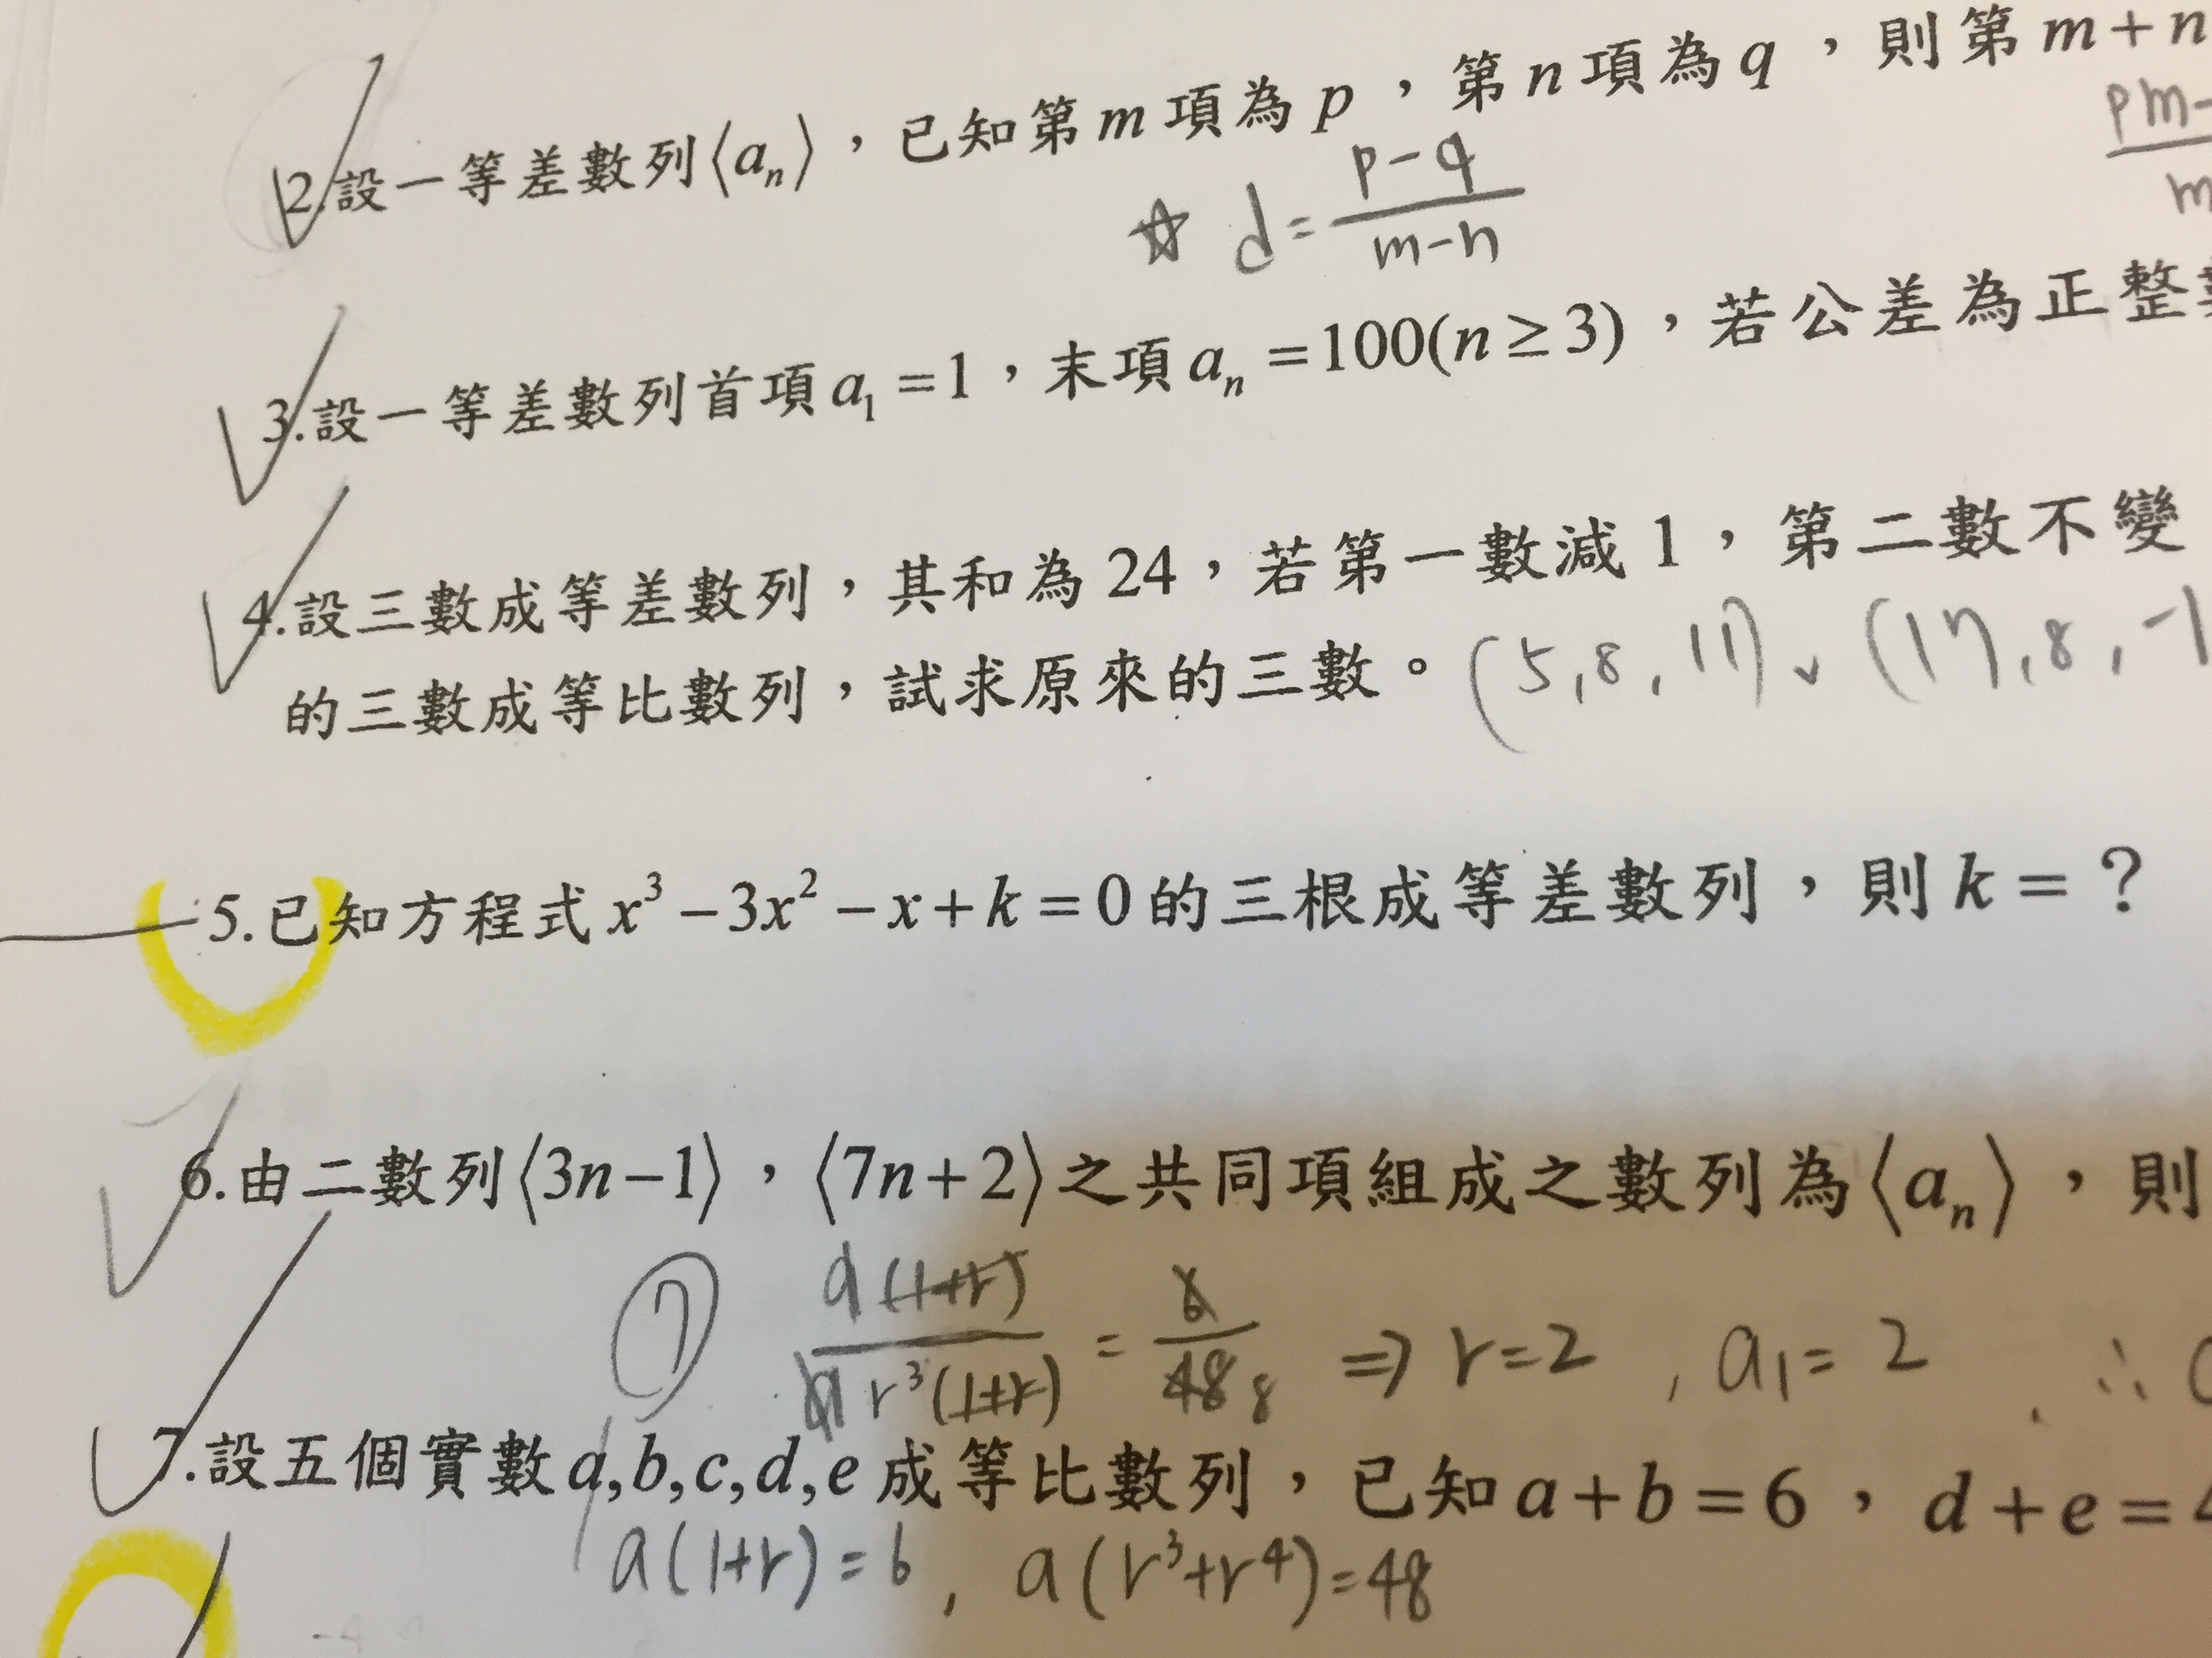 2.設一等差數列⟨aₙ⟩，已知第m項為p，第n項為q，則第m+n
pm-
m
☆ d=(p-q)/(m-n)
3.設一等差數列首項a₁=1，末項aₙ=100(n≥3)，若公差為正整
4.設三數成等差數列，其和為24，若第一數減1，第二數不變
的三數成等比數列，試求原來的三數。(5,8,11)、(17,8,-1
5.已知方程式x³-3x²-x+k=0的三根成等差數列，則k=？
6.由二數列⟨3n-1⟩，⟨7n+2⟩之共同項組成之數列為⟨aₙ⟩，則
⑦ a(1+r)/(a r³(1+r))=6/48 8 ⇒ r=2, a₁=2, ∴
7.設五個實數a,b,c,d,e成等比數列，已知a+b=6，d+e=4
a(1+r)=6, a(r³+r⁴)=48